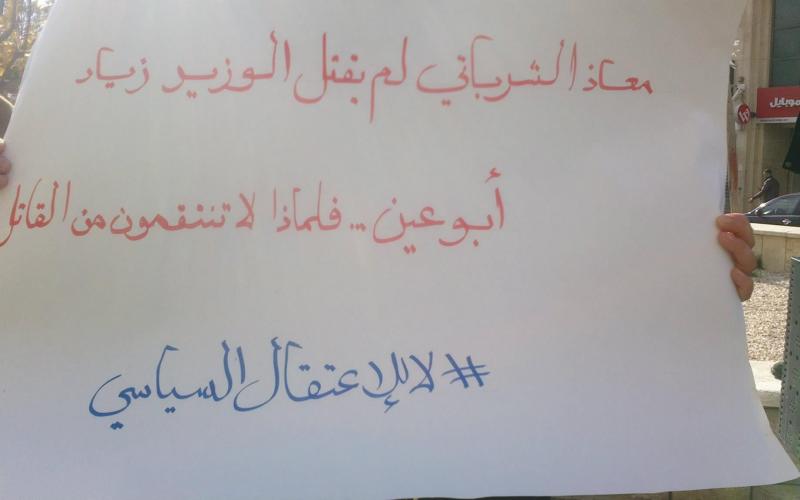 معاذ الشرباتي لم يقتل الوزير زياد
أبو عين ... فلماذا لا تنتقمون من القاتل
#لا للإعتقال السياسي
موبايل